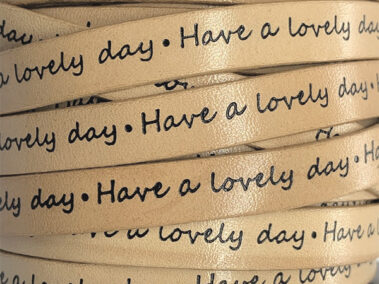 Have a lovely day
a lovely day • Have a lovely day
lovely day • Have a lovely day •
ly day • Have a lovely day • H
Have a lovely day • Have a
Have a lovely day • Have a lovely